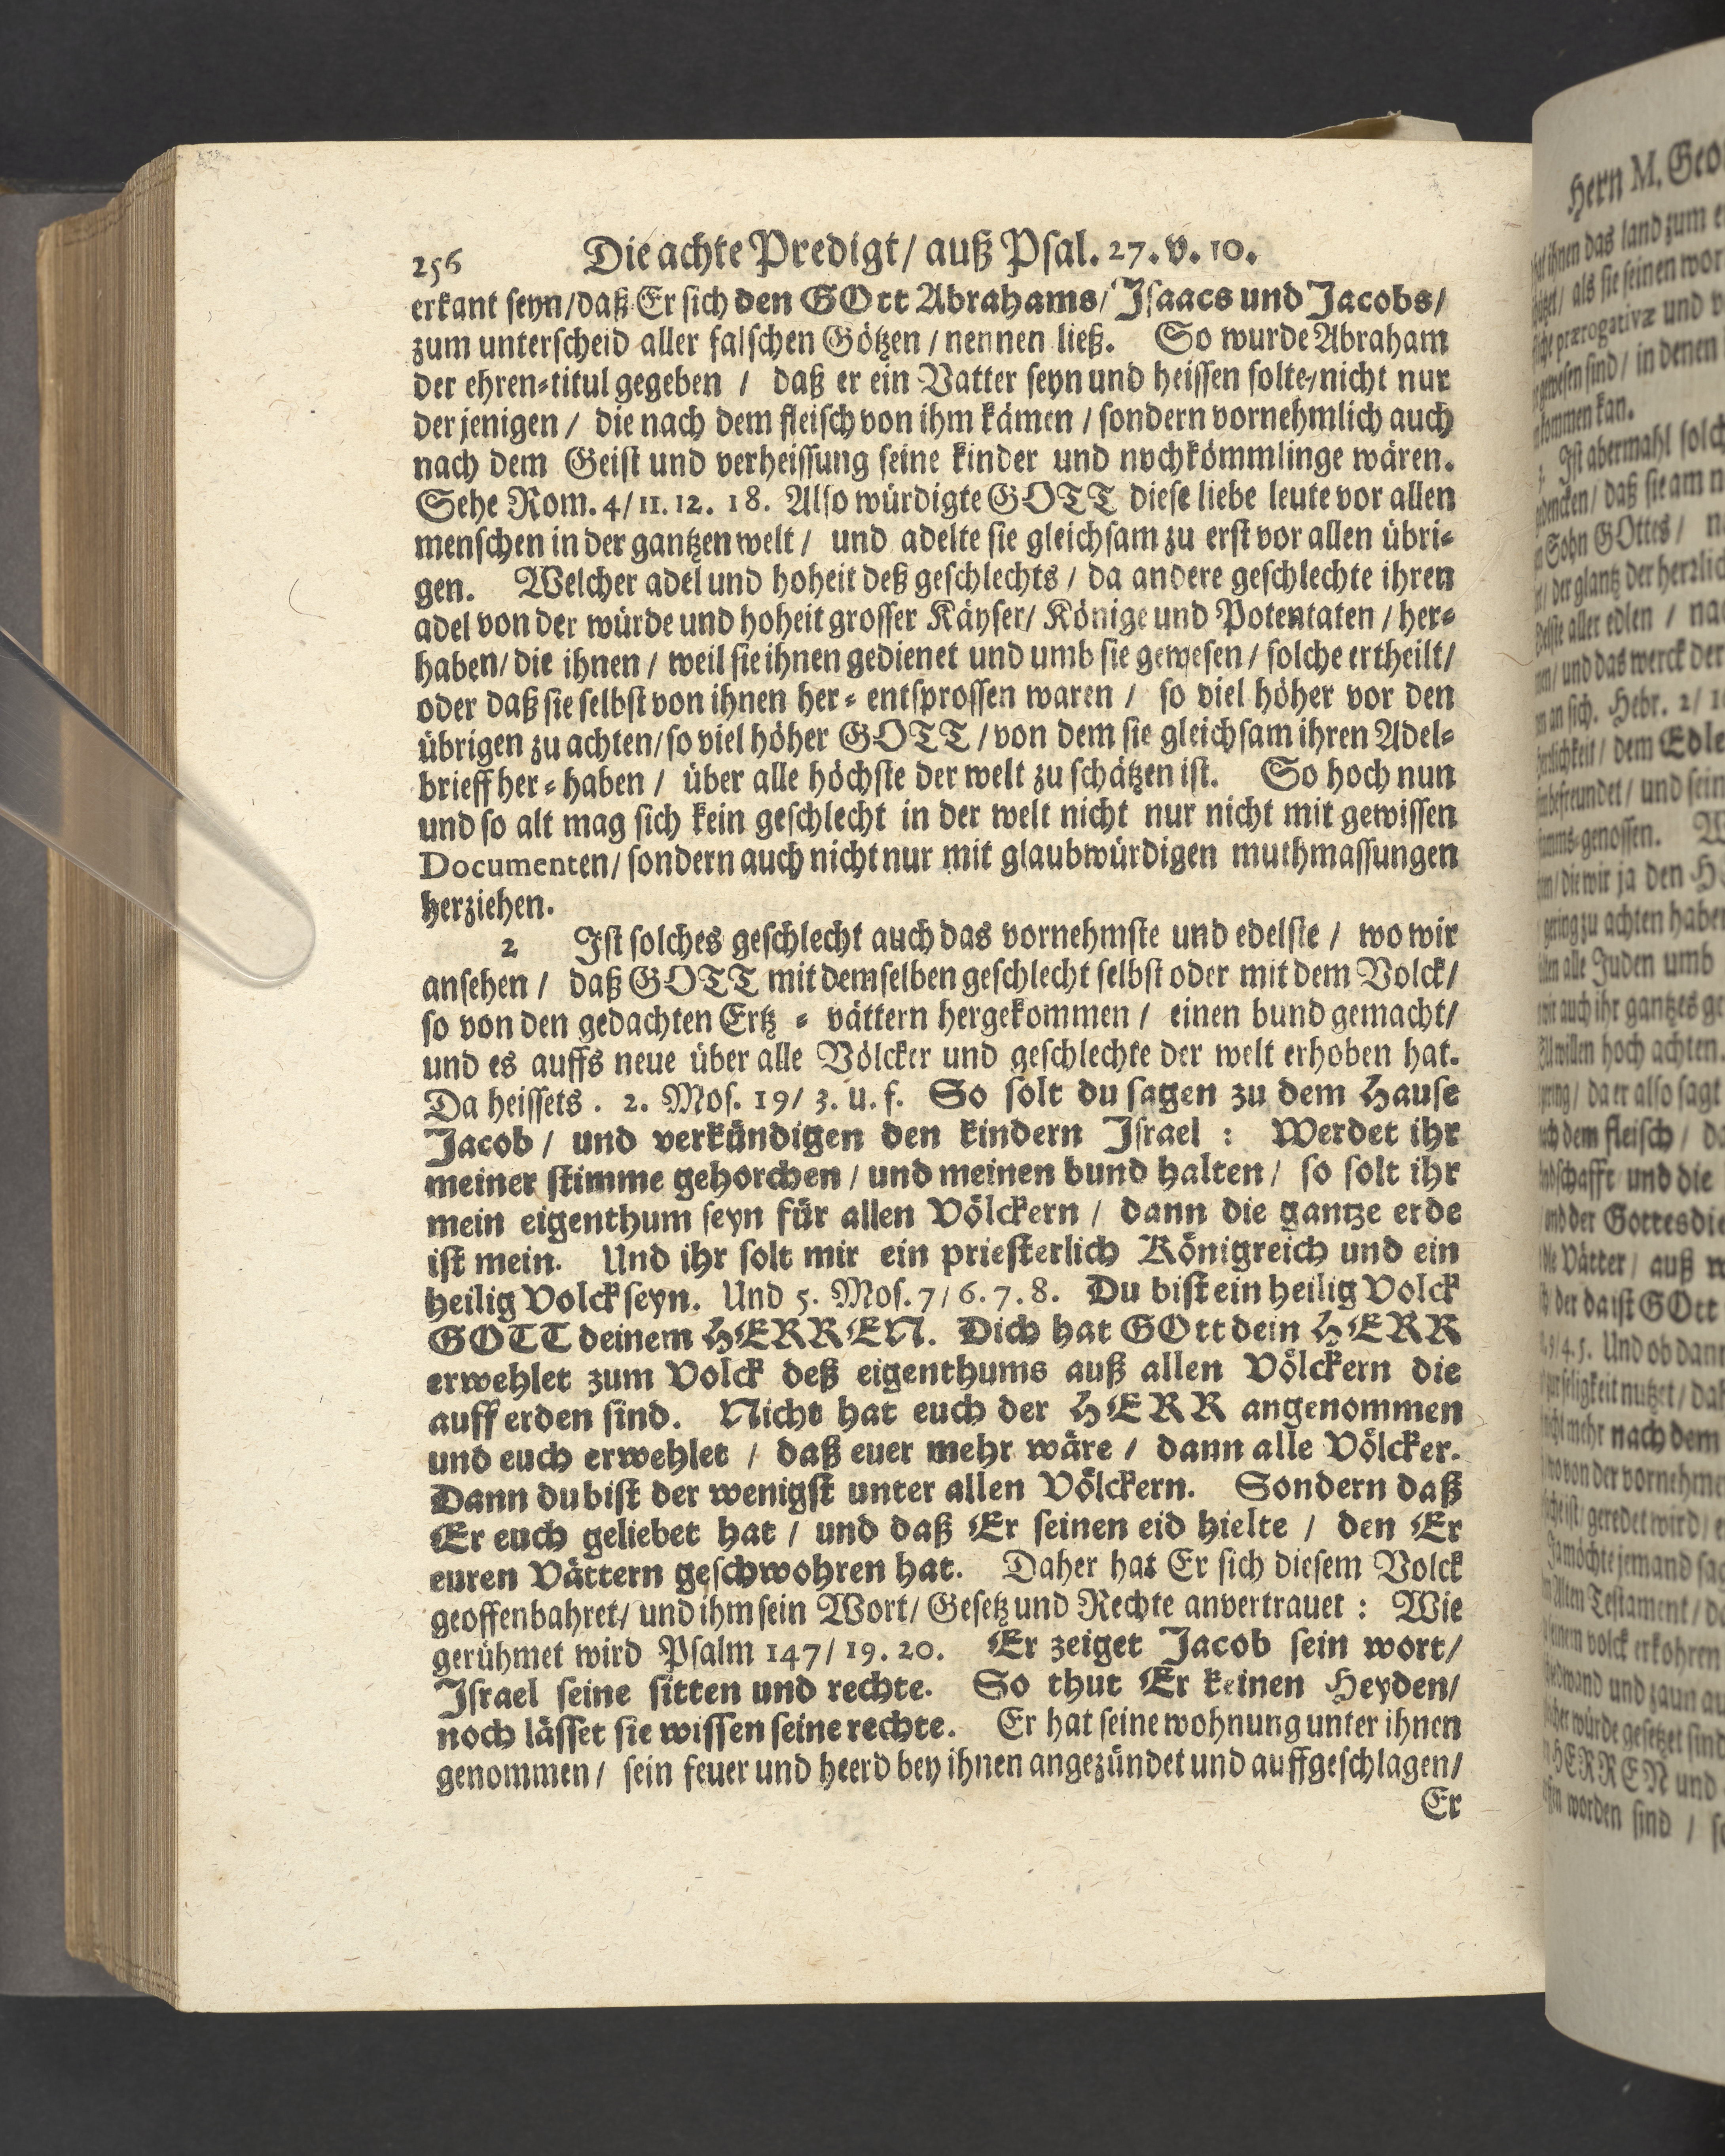 256 Die achte Predigt/ auß Psal. 27. v. 10.
erkant seyn/daß Er sich den GOtt Abrahams/ Isaacs und Jacobs/
zum unterscheid aller falschen Götzen / nennen ließ. So wurde Abraham
der ehren-titul gegeben / daß er ein Vatter seyn und heissen solte/nicht nur
der jenigen / die nach dem fleisch von ihm kämen / sondern vornehmlich auch
nach dem Geist und verheissung seine kinder und nvchkömmlinge wären.
Sehe Rom. 4/ 11. 12. 18. Also würdigte GOTT diese liebe leute vor allen
menschen in der gantzen welt / und adelte sie gleichsam zu erst vor allen übri-
gen. Welcher adel und hoheit deß geschlechts / da andere geschlechte ihren
adel von der würde und hoheit grosser Käyser/ Könige und Potentaten / her-
haben/ die ihnen / weil sie ihnen gedienet und umb sie gewesen / solche ertheilt/
oder daß sie selbst von ihnen her-entsprossen waren / so viel höher vor den
übrigen zu achten/ so viel höher GOTT / von dem sie gleichsam ihren Adel-
brieff her-haben / über alle höchste der welt zu schätzen ist. So hoch nun
und so alt mag sich kein geschlecht in der welt nicht nur nicht mit gewissen
Documenten/ sondern auch nicht nur mit glaubwürdigen muthmassungen
herziehen.
2 Ist solches geschlecht auch das vornehmste und edelste / wo wir
ansehen / daß GOTT mit demselben geschlecht selbst oder mit dem Volck/
so von den gedachten Ertz-vättern hergekommen / einen bund gemacht/
und es auffs neue über alle Völcker und geschlechte der welt erhoben hat.
Da heissets . 2. Mos. 19/ 3. u. f. So solt du sagen zu dem Hause
Jacob / und verkündigen den kindern Israel : Werdet ihr
meiner stimme gehorchen / und meinen bund halten / so solt ihr
mein eigenthum seyn für allen Völckern / dann die gantze erde
ist mein. Und ihr solt mir ein priesterlich Königreich und ein
heilig Volck seyn. Und 5. Mos. 7/ 6. 7. 8. Du bist ein heilig Volck
GOTT deinem HERREN. Dich hat GOtt dein HERR
erwehlet zum Volck deß eigenthums auß allen Völckern die
auff erden sind. Nicht hat euch der HERR angenommen
und euch erwehlet / daß euer mehr wäre / dann alle Völcker.
Dann du bist der wenigst unter allen Völckern. Sondern daß
Er euch geliebet hat / und daß Er seinen eid hielte / den Er
euren Vättern geschwohren hat. Daher hat Er sich diesem Volck
geoffenbahret/ und ihm sein Wort/ Gesetz und Rechte anvertrauet : Wie
gerühmet wird Psalm 147/ 19. 20. Er zeiget Jacob sein wort/
Israel seine sitten und rechte. So thut Er keinen Heyden/
noch lässet sie wissen seine rechte. Er hat seine wohnung unter ihnen
genommen / sein feuer und heerd bey ihnen angezündet und auffgeschlagen/
Er
Hern M.
ihnen das land zum
als sie seinen
prærogativæ und
gewesen sind / in denen
kommen kan.
Ist abermahl
daß sie am
Sohn GOttes /
der glantz der
aller edlen /
und das werck der
an sich. Hebr. 2/
dem Edle
und sein
genossen.
die wir ja den
gering zu achten haben
alle Juden umb
auch ihr gantzes
willen hoch achten.
da er also sagt
dem fleisch /
und die
und der
die Vätter / auß
der da ist GOtt
9/ 4. 5. Und ob dann
nutzet /
mehr nach dem
von der
ist / geredet wird /
möchte jemand
Alten Testament /
volck erkohren
und zaun
würde gesetzet sind
HERREN und
worden sind /